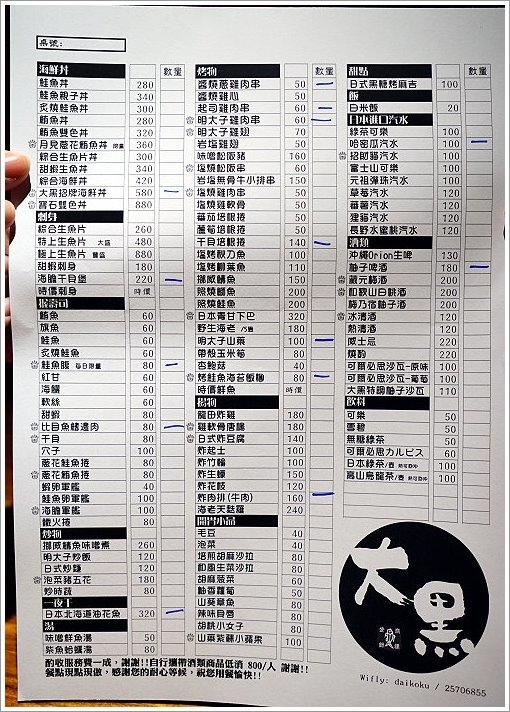 桌號:
海鮮丼 數量
鮭魚丼 280
鮭魚親子丼 340
炙燒鮭魚丼 300
鮪魚丼 280
鮪魚雙色丼 320
月見蔥花鮪魚丼 限量 360
綜合生魚片丼 300
甜蝦生魚丼 340
綜合海鮮丼 420
大黑招牌海鮮丼 580
寶石雙色丼 880
刺身
綜合生魚片 260
特上生魚片 大盛 480
極上生魚片 豐盛 880
甜蝦刺身 180
海膽干貝堡 220
時價刺身 時價
握壽司
鮪魚 60
旗魚 60
鮭魚 60
炙燒鮭魚 60
鮭魚腹 每日限量 80
紅甘 60
海鱺 60
軟絲 60
甜蝦 60
比目魚鰭邊肉 80
干貝 80
穴子 100
蔥花鮭魚捲 80
蔥花鮪魚捲 100
蝦卵軍艦 40
鮭魚卵軍艦 100
海膽軍艦 100
懺火捲 80
炒物
挪威鯖魚味噌煮 260
明太子炒飯 120
日式炒麵 120
泡菜豬五花 180
炒時蔬 80
一夜干
日本北海道油花魚 320
湯
味噌鮮魚湯 50
紫魚蛤蠣湯 80
烤物 數量
醬燒蔥雞肉串 50
醬燒雞心 50
起司雞肉串 60
明太子雞肉串 60
明太子雞翅 70
岩塩雞翅 60
味噌松阪豬 160
塩燒松阪串 60
岩塩無骨牛小排串 150
塩燒雞肉串 50
塩燒雞軟骨 50
番茄培根捲 50
蘆筍培根捲 50
干貝培根捲 140
塩烤秋刀魚 100
塩烤柳葉魚 110
挪威鯖魚 150
照燒鯛魚 200
照燒鮭魚 200
日本青甘下巴 320
野生海老 180
明太子山藥 100
帶殼玉米筍 80
杏鮑菇 40
烤鮭魚海苔飯糰 80
時價鮮魚 時價
揚物
龍田炸雞 180
雞軟骨唐揚 180
日式炸豆腐 140
炸起士 100
炸竹輪 100
炸生蠔 150
炸花枝 120
炸肉排(牛肉) 160
海老天麩羅 240
開胃小品
毛豆 40
泡菜 40
焙煎胡麻沙拉 80
和風生菜沙拉 80
胡麻菠菜 60
柚香蘿蔔 50
山葵章魚 50
辣味貝唇 50
胡桃小女子 80
山葉紫蘇小蘋果 100
甜點 數量
日式黑糖烤麻吉 100
飯
白米飯 20
日本進口汽水
綠茶可樂 100
哈密瓜汽水 100
招財貓汽水 100
富士山可樂 100
元祖彈珠汽水 100
草莓汽水 100
蕃薯汽水 100
狸貓汽水 100
長野水蜜桃汽水 100
酒類
沖繩Orion生啤 130
柚子啤酒 180
藏元梅酒 200
和歌山白桃酒 200
梅乃宿柚子酒 200
冰清酒 120
熱清酒 120
威士忌 220
燒酌 220
可爾必思沙瓦-原味 100
可爾必思沙瓦-葡萄 100
大黑特調柚子沙瓦 110
飲料
可樂 50
雪碧 50
無糖綠茶 50
可爾必思カルピス 60
日本綠茶/壺 熱可回沖 100
高山烏龍茶/壺 熱可回沖 100
大黑
酌收服務費一成，謝謝!!自行攜帶酒類商品低消 800/人 謝謝!!
餐點現點現做，感謝您的耐心等候，祝您用餐愉快!!
Wifly: daikoku / 25706855